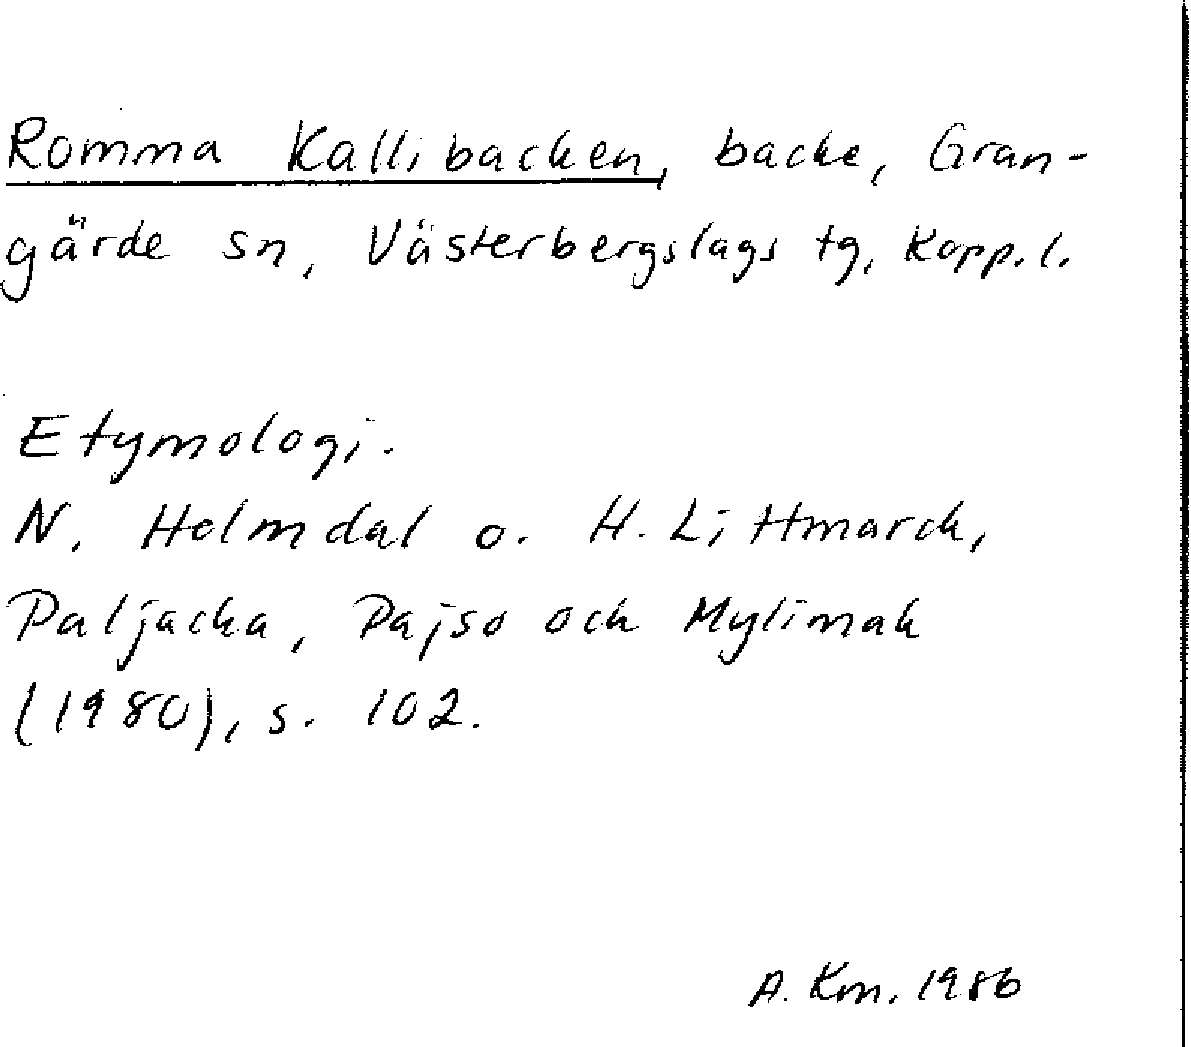 Romma Kallibacken, backe, Gran-
gärde sn, Västerbergslags tg, Kopp. l.
Etymologi.
N. Helmdal o. H. Littmarck,
Paljacka, Pajso och Mylimak
(1980), s. 102.
A. Km. 1986